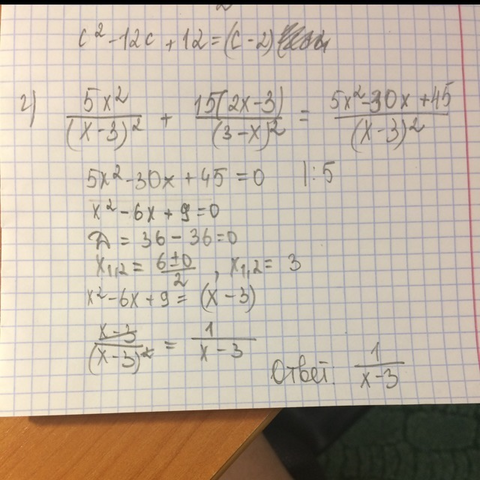 c² - 12c + 12 = (c - 2)
г) 5x²/(x-3)² + 15(2x-3)/(3-x)² = 5x²-30x+45/(x-3)²
5x² - 30x + 45 = 0 | : 5
x² - 6x + 9 = 0
Д = 36 - 36 = 0
x₁,₂ = 6±0/2 , x₁,₂ = 3
x² - 6x + 9 = (x - 3)
x-3/(x-3)² = 1/x-3
Ответ: 1/x-3